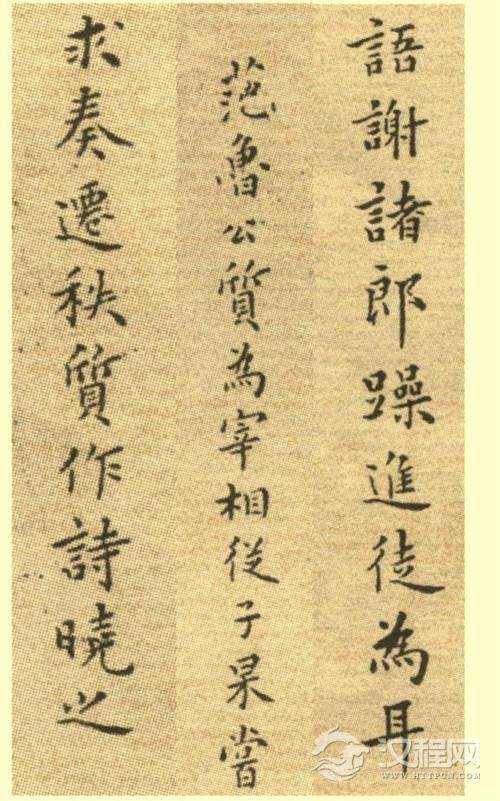 語謝諸郎躁進徒為耳
范魯公質為宰相従子杲嘗
求奏遷秩質作詩曉之
汉程网
WWW.HTTPCN.COM